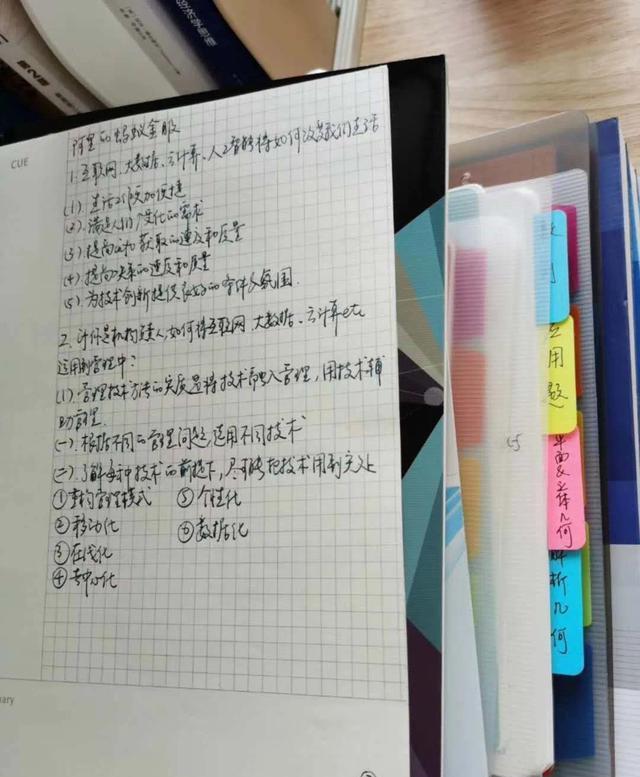 CUE
阿里的蚂蚁金服
1.互联网、大数据、云计算、人工智能将如何改变我们生活
(1).生活工作更加便捷
(2).满足人们个性化的需求
(3)提高认知获取的速度和质量
(4).提高决策的速度和质量
(5).为技术创新提供良好的条件及氛围.
2.计你是机构负责人,如何将互联网、大数据、云计算etc
运用到管理中?
(1).管理技术方法的实质是将技术融入管理,用技术辅
助管理.
(一).根据不同的管理问题,适用不同技术
(二).了解每种技术的前提下,尽可能把技术用到实处
①契约管理模式 ⑤个性化
②移动化 ⑥数据化
③在线化
④去中心化
应用题
平面及立体几何
解析几何